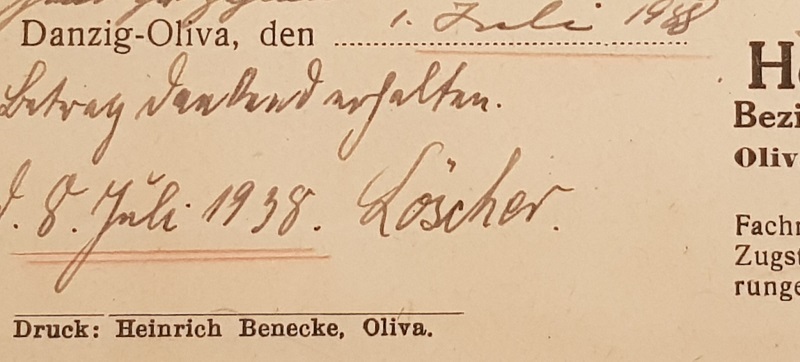 Danzig-Oliva, den 1. Juli 1938
Betrag dankend erhalten.
d. 8. Juli 1938. Löscher.
Druck: Heinrich Benecke, Oliva.
H
Bezi
Oliv
Fachr
Zugst
runge